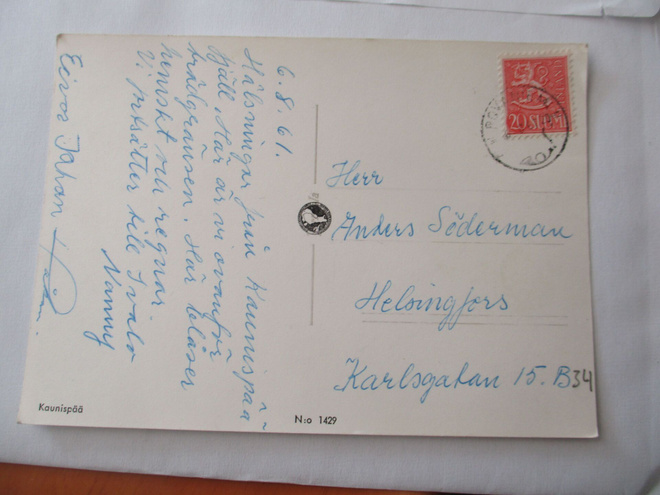 6.8.61.
Hälsningar från Kaunispää
fjäll. Här är vi ovanför
trädgränsen. Här blåser
hemskt och regnar.
Vi fortsätter till Ivalo
Nanny
Eeva Johan
Herr
Anders Söderman
Helsingfors
Karlsgatan 15. B34
20 SUOMI
Kaunispää
N:o 1429